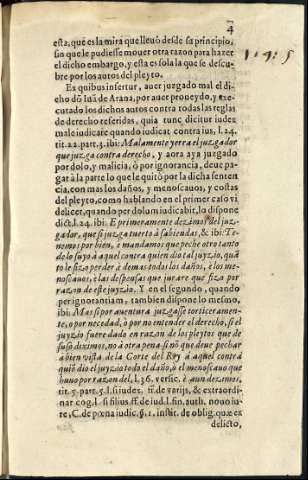 4
1.4.5
esta, qué es la mira que lleuó desde su principio,
sin que le pudiesse mouer otra razon para hazer
el dicho embargo, y esta es sola la que se descu-
bre por los autos del pleyto.
Ex quibus infertur, auer juzgado mal el di-
cho dō Iuā de Arana, por auer proueydo, y exe-
cutado los dichos autos contra todas las reglas
de derecho referidas, quia tunc dicitur iudex
male iudicare quando iudicat contra ius, l. 24.
tit. 22. part. 3. ibi: Malamente yerra el juzgador
que juzga contra derecho, y aora aya juzgado
por dolo, y malicia, ò por ignorancia, deue pa-
gar à la parte lo que le quitò por la dicha senten
cia, con mas los daños, y menoscauos, y costas
del pleyto, como hablando en el primer caso vi
delicet, quando per dolum iudicabit, lo dispone
dict. l. 24. ibi: E primeramente dezimos del juz-
gador, que si juzga tuerto à sabiendas, & ibi: Te-
nemos por bien, è mandamos que peche otro tanto
de lo suyo à aquel contra quien dio tal juyzio, quā
to le fiza perder è demas todos los daños, è los me-
noscauos, è las dispensas que jurare que fiza por
razon de este juyzio. Y en el segundo, quando
per ignorantiam, tambien dispone lo mesmo,
ibi: Mas si por auentura juzgasse torticeramen-
te, o por necedad, ò por no entender el derecho, si el
juyzio fuere dado en razon de los pleytos que de
suso diximos, no à otra pena si nò que deue pechar
à bien vista de la Corte del Rey à aquel contra
quiē dio el juyzio todo el daño, ò el menoscauo que
huuo por razon del, l. 36. versic. è aun dezimos,
tit. 5. part. 5. l. si iudex. ff. de varijs, & extraordi-
nar cog. l. si filius ff. de iud. l. fin. auth. nouo iu-
re, C. de pœna iudic. §. 1. instit. de oblig. quæ ex
delicto,